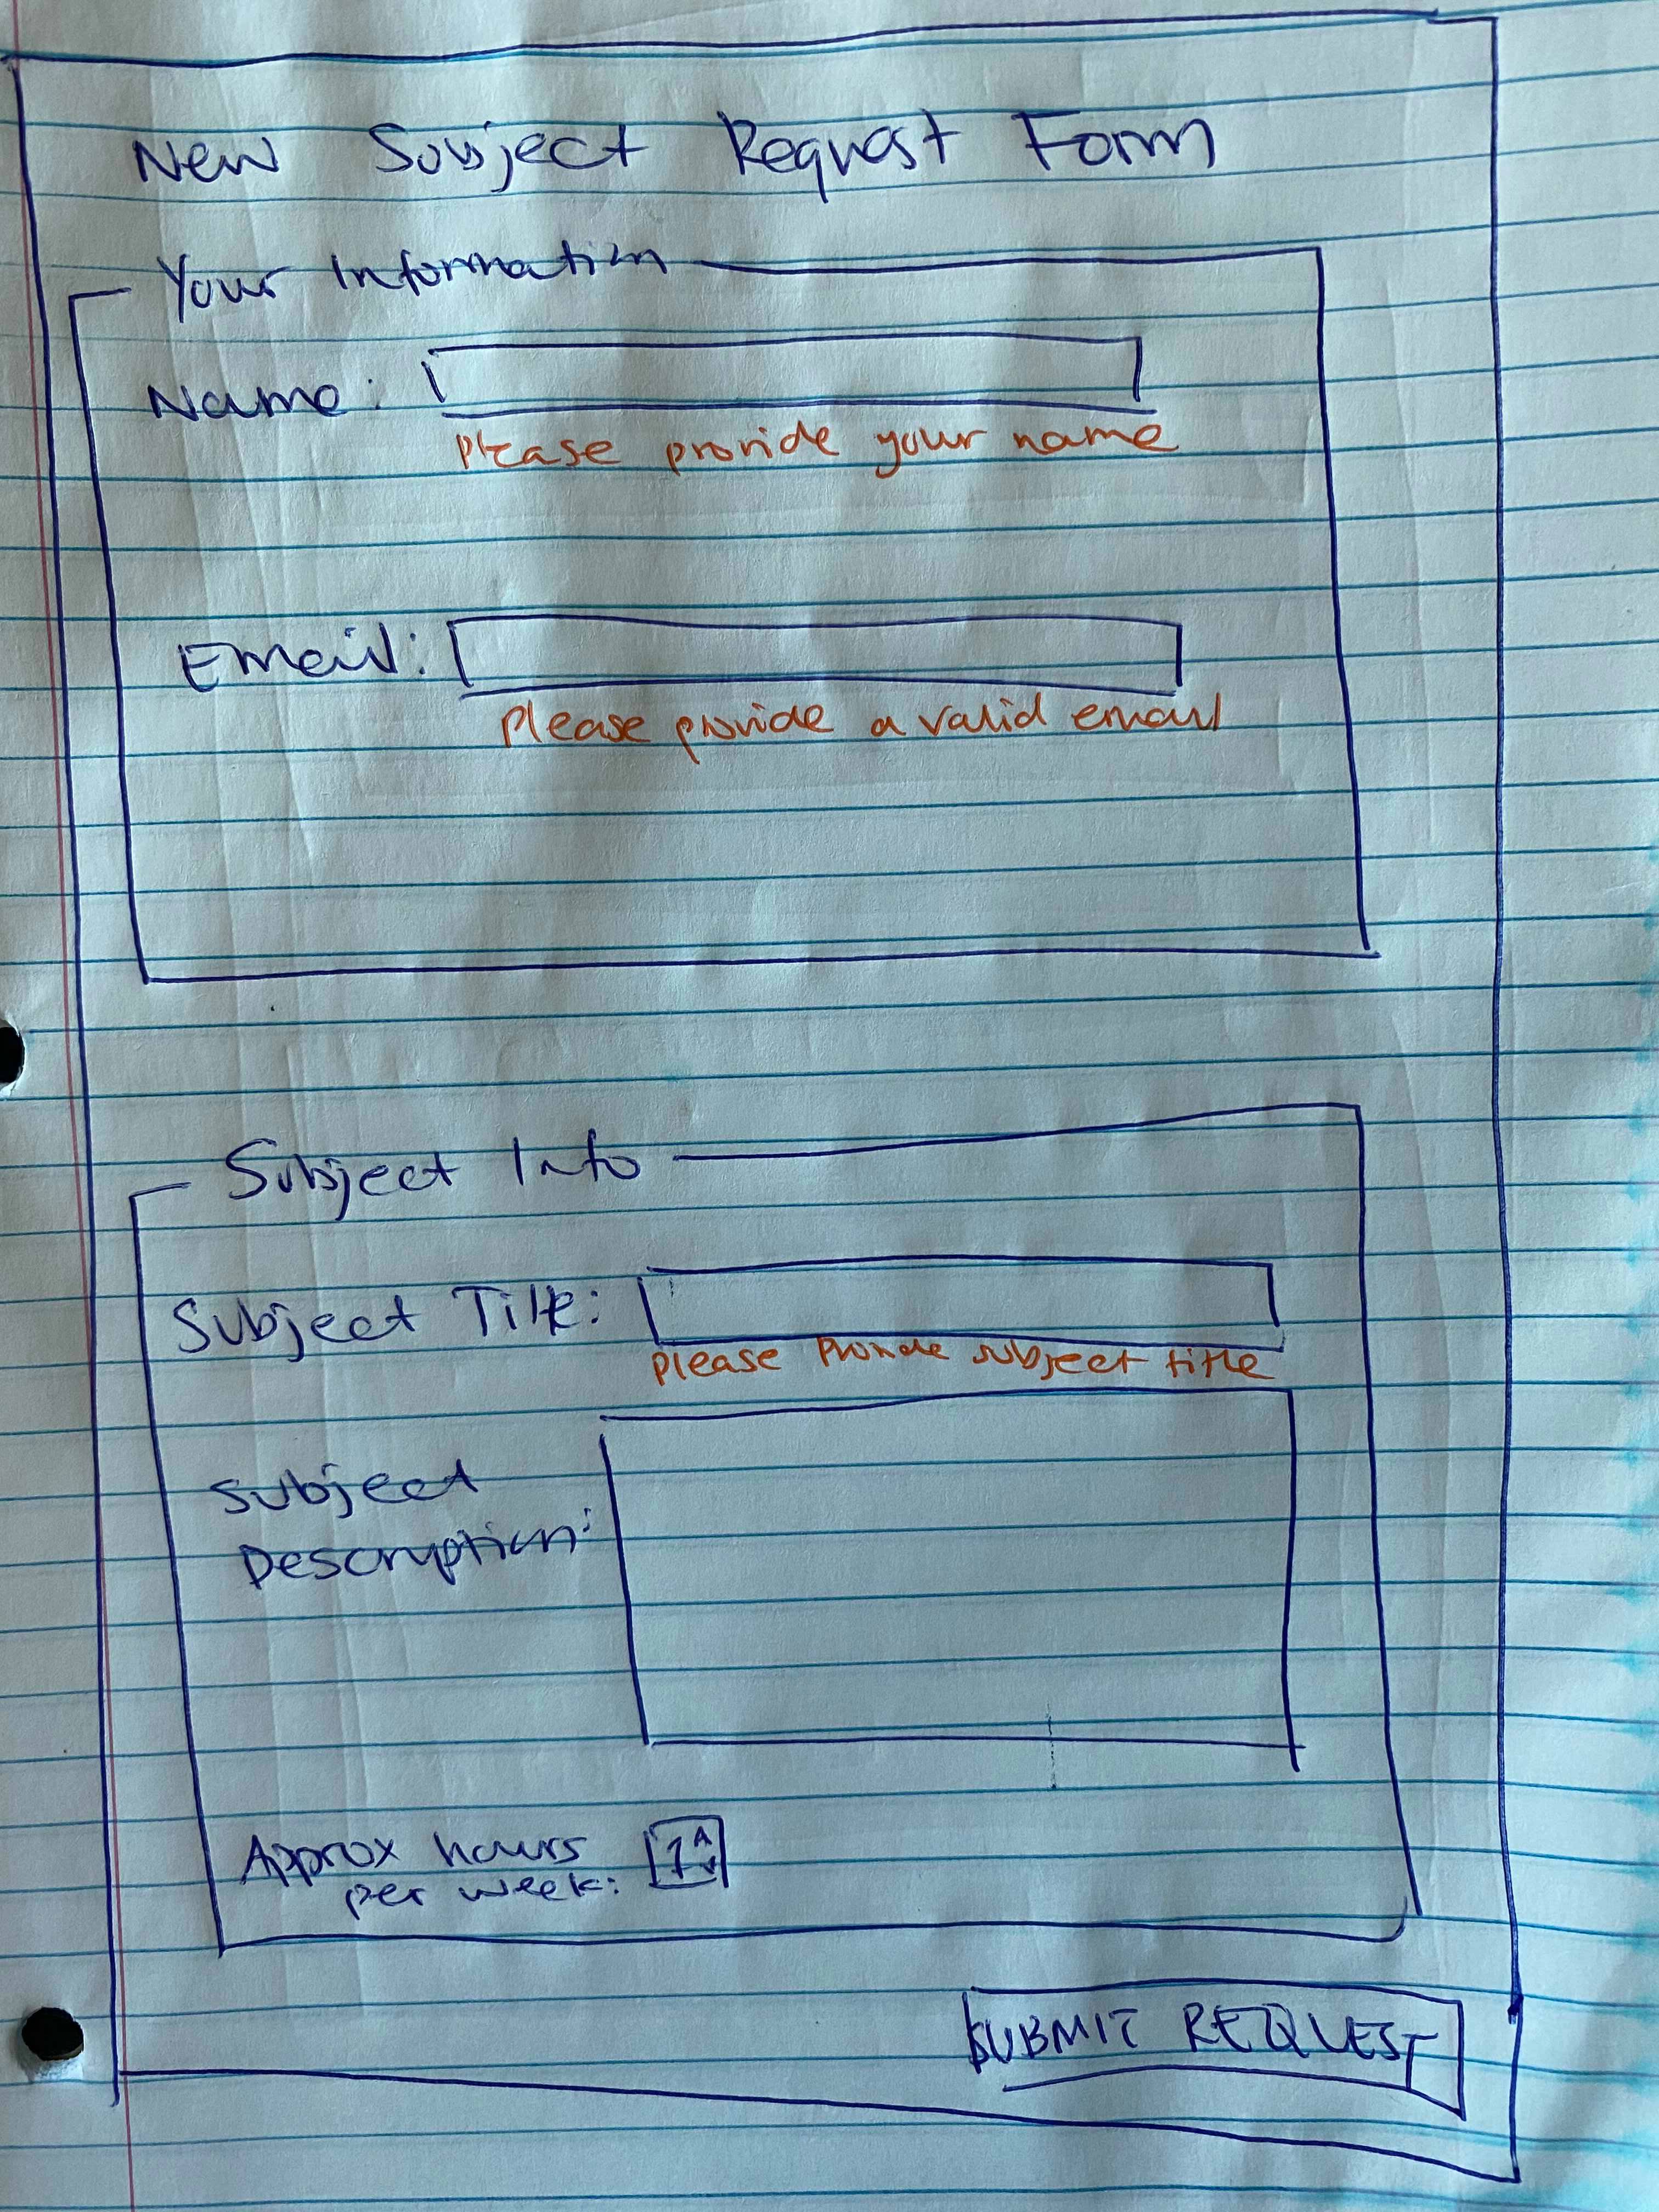 New Subject Request Form
Your Information
Name:
Please provide your name
Email:
Please provide a valid email
Subject Info
Subject Title:
Please Provide subject title
Subject
Description:
Approx hours
per week: 1
SUBMIT REQUEST